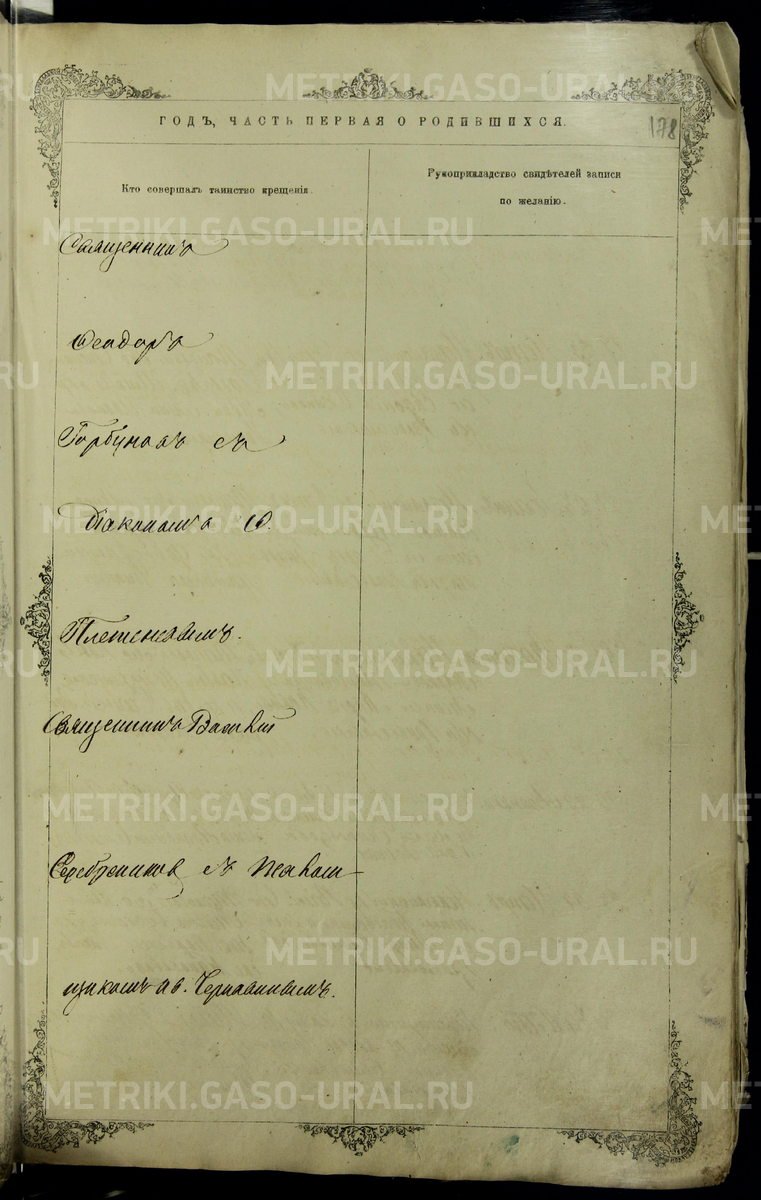 METRIKI.GASO-URAL.RU
ГОДЪ, ЧАСТЬ ПЕРВАЯ О РОДИВШИХСЯ.
178
Кто совершалъ таинство крещенія.
Рукоприкладство свидѣтелей записи
по желанію.
Священникъ
Ѳеодоръ
Горбуновъ съ
Діакономъ
Священникъ Василій
Серебрениковъ съ Псалом-
щикомъ